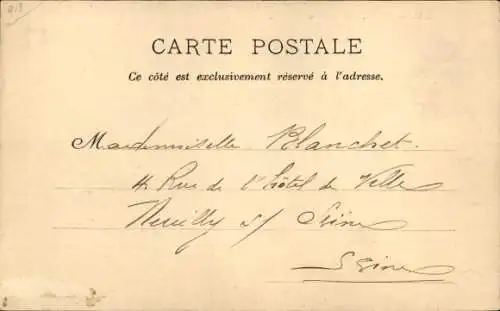 CARTE POSTALE
Ce côté est exclusivement réservé à l'adresse.
Mademoiselle Blanchet.
4 Rue de l'hôtel de Ville
Neuilly s/ Seine
Seine